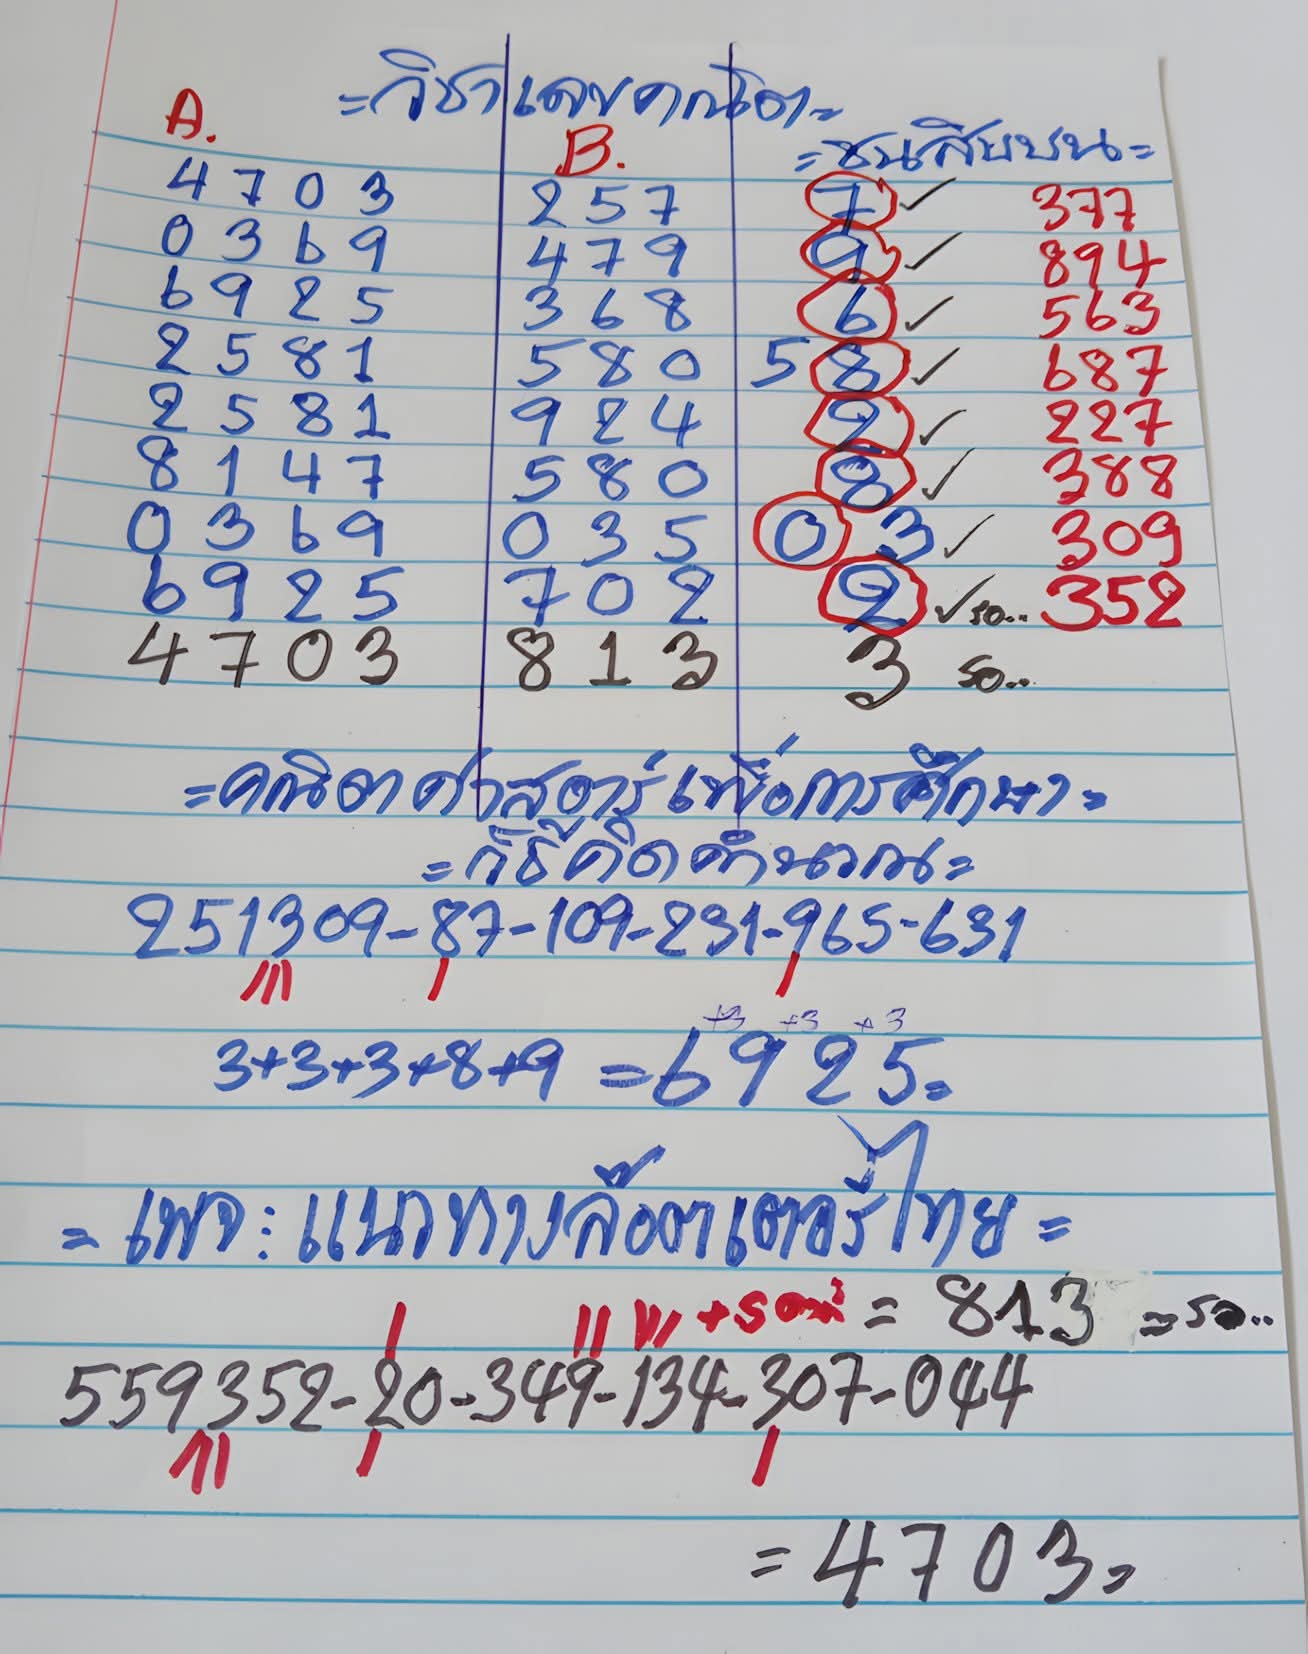 =วิชาเลขคณิต=
A. B. =ชนสิบบน=
4703 257 7 ✓ 377
0369 479 9 ✓ 894
6925 368 6 ✓ 563
2581 580 58 ✓ 687
2581 924 2 ✓ 227
8147 580 8 ✓ 388
0369 035 03 ✓ 309
6925 702 2 ✓ รอ.. 352
4703 813 3 รอ..
=คณิตศาสตร์เพื่อการศึกษา=
=วิธีคิดคำนวณ=
251309-87-109-231-965-631
+3 +3 +3
3+3+3+8+9 =6925=
=เพจ:แนวทางล๊อตเตอรี่ไทย=
= 813 =รอ..
559352-20-349-134-307-044
=4703=